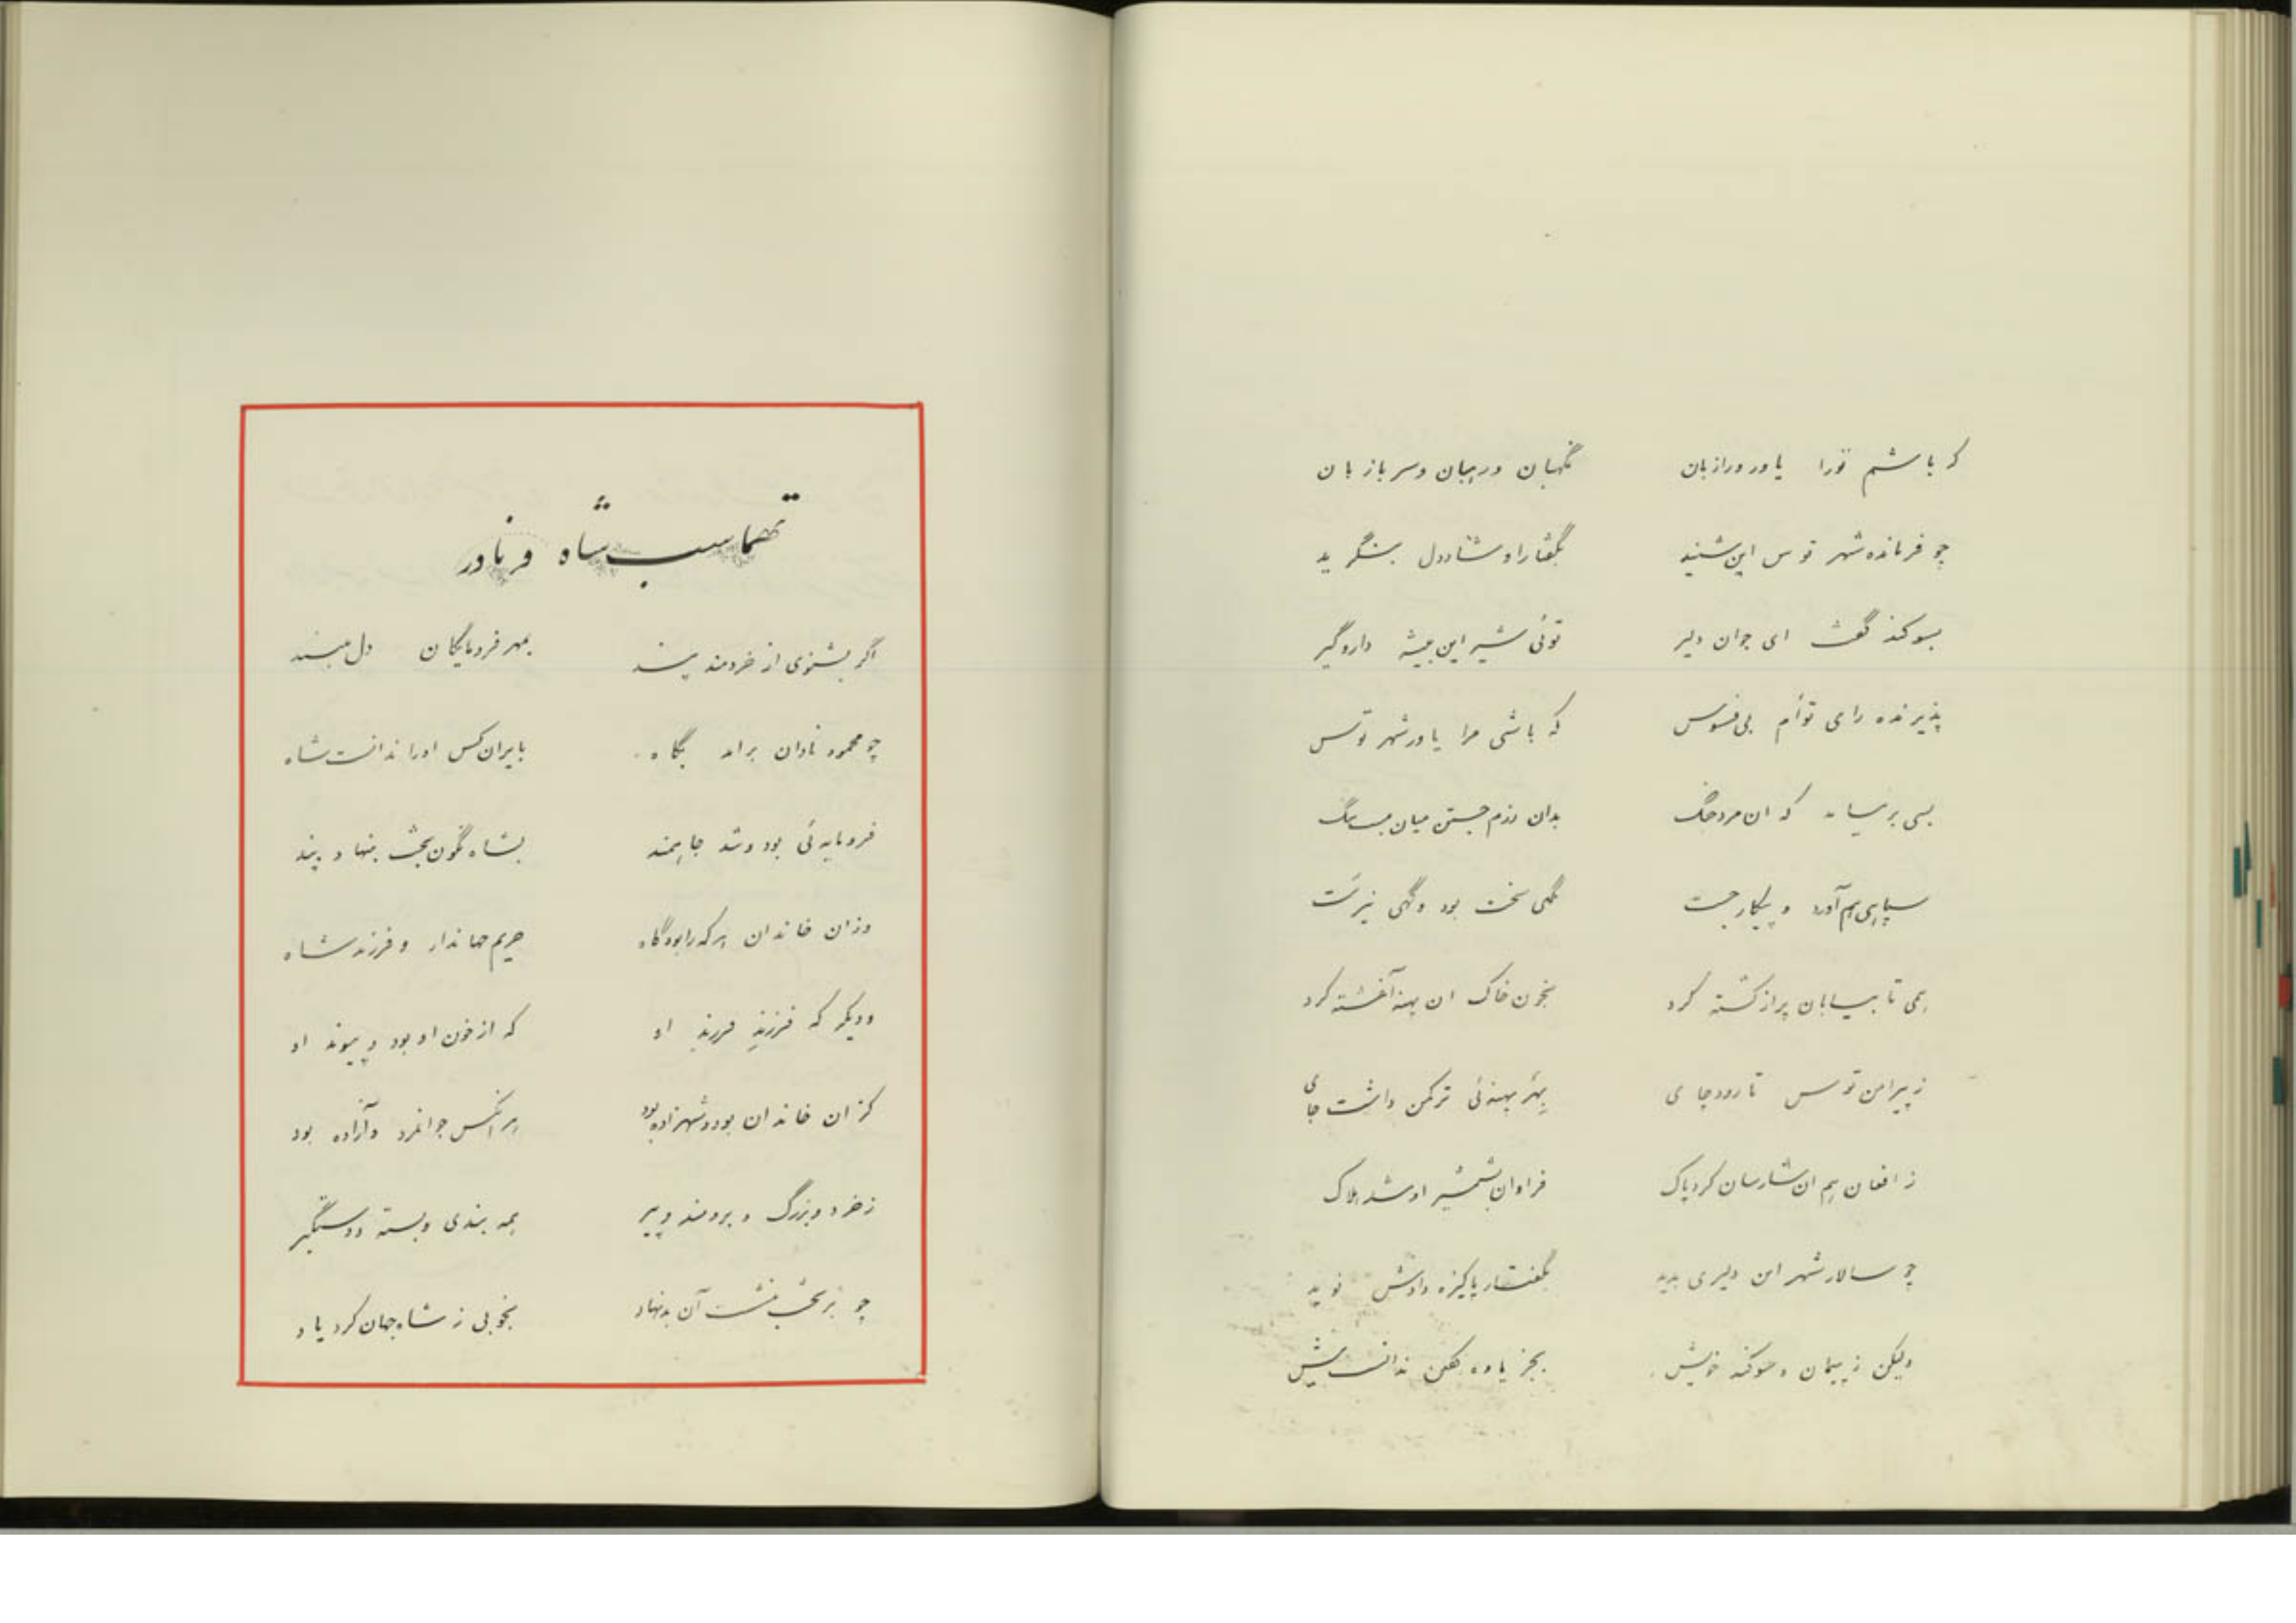 که باشم تو را یاور و رازبان نگهبان و رهبان و سربازبان
چو فرمانده شهر توس این شنید بگفتار او شاددل بنگرید
بسوگند گفت ای جوان دلیر توئی شیر این بیشه داروگیر
پذیرنده رای توأم بی فسوس که باشی مرا یاور شهر توس
بسی بر نیامد که ان مرد جنگ بدان رزم جستن میان بست تنگ
سپاهی بهم آورد و پیکار جست گهی سخت بود و گهی نیز سست
همی تا بیابان پر از کشته کرد بخون خاک ان پهنه آغشته کرد
ز پیرامن توس تا رود جای بهر پهنه‌ئی ترکمن داشت جای
ز افغان هم ان شارسان کرد پاک فراوان بشمشیر او شد هلاک
چو سالار شهر این دلیری بدید بگفتار پاکیزه دادش نوید
ولیکن ز پیمان و سوگند خویش بجز یاوه گفتن ندانست بیش
تهماسب شاه و نادر
اگر بشنوی از خردمند پند بمهر فرومایگان دل مبند
چو محمود نادان برامد بگاه بایران کس او را ندانست شاه
فرومایه‌ئی بود و شد جاهمند بشاه نگون بخت بنهاد بند
وزان خاندان هر که را بود گاه حریم جهاندار و فرزند شاه
و دیگر که فرزندِ فرزند او که از خون او بود و پیوند او
کز ان خاندان بود و شهزاده بود هر انکس جوانمرد و آزاده بود
ز خرد و بزرگ و برومند و پیر همه بندی و بسته و دستگیر
چو بر تخت بنشست آن بدنهاد بخوبی ز شاه جهان کرد یاد